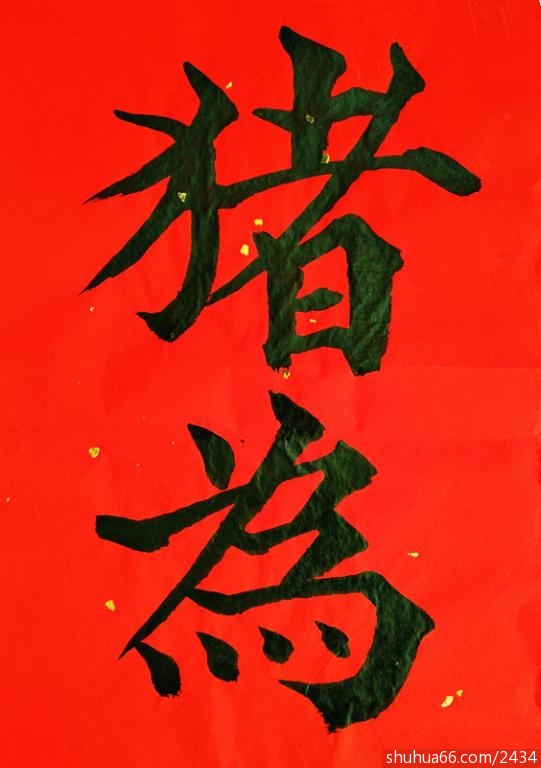 猪
為
shuhua66.com/2434